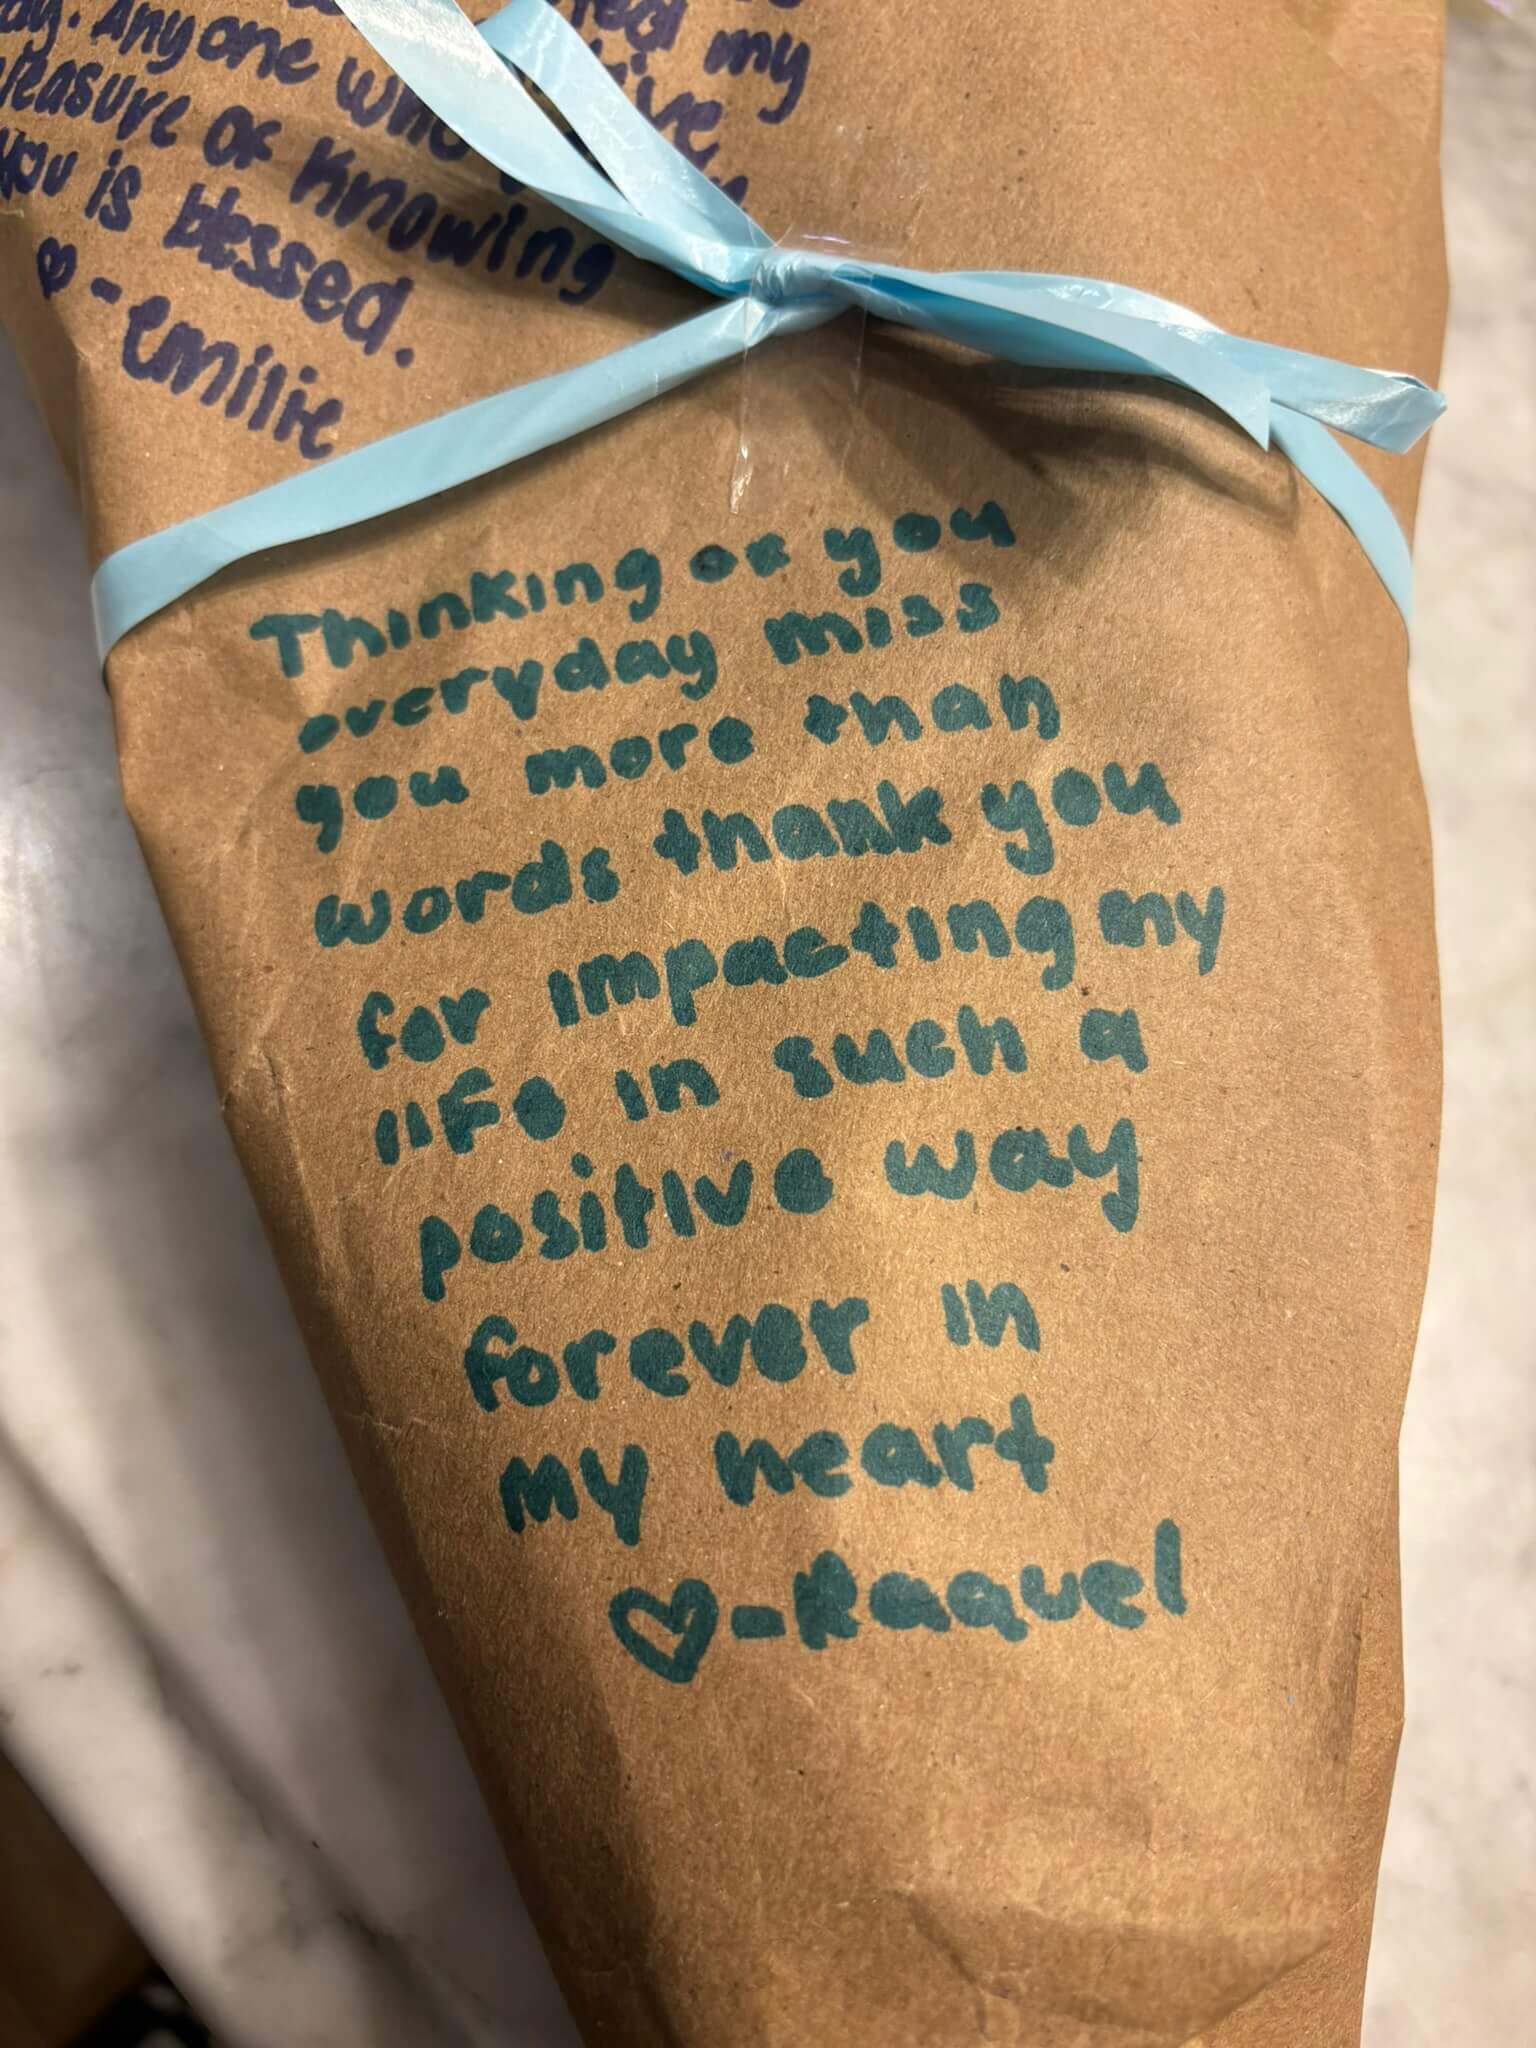 my
Anyone
pleasure of knowing
you is blessed.
♡-emilie
Thinking of you
everyday miss
you more than
words thank you
for impacting my
life in such a
positive way
forever in
my heart
♡-Raquel